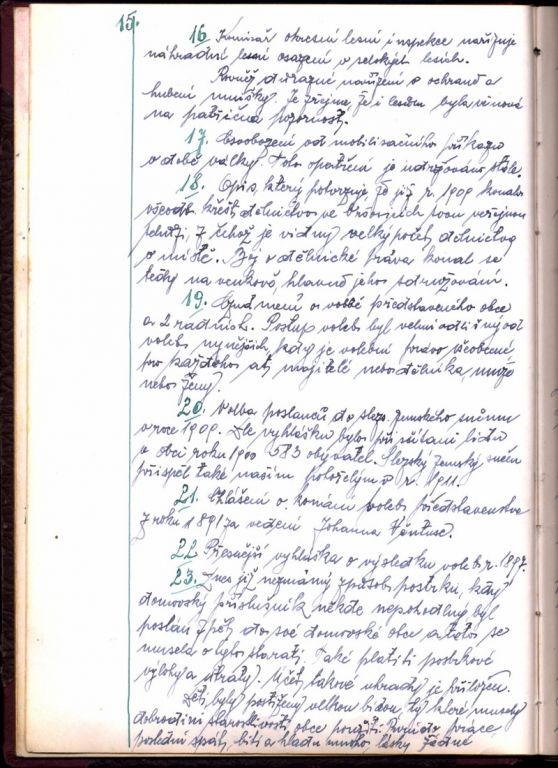 15.
16. Komisař okresní lesní inspekce nařizuje
náhradní lesní osazení v selských lesích.
Rovněž důrazné nařízení o ochraně a
hubení mnišky. Je zřejmo, že i lesům byla věnová
na patřičná pozornost.
17. Osvobození od mobilisačního příkazu
v době války. Toto opatření je udržováno stále.
18. Opis, který potvrzuje, že již r. 1909 konalo
všeodb. křest. dělnictvo ve svou veřejnou
schůzi, z čehož je vidný velký počet dělnictva
v místě. Boj v dělnické práva konal se
tedy na venkově, hlavně jeho sdružování.
19. o volbě představeného obce
a 2 radních. Postup voleb byl velmi odlišný od
voleb nynějších, kdy je volební právo všeobecné
pro každého, ať majitele nebo dělníka, muže
nebo ženy.
20. Volba poslanců do slezs. zemského sněmu
v roce 1909. Dle vyhlášky bylo při sčítání lidu
v obci roku 1900 583 obyvatel. Slezský zemský sněm
přispěl také našim pohořelým v r. 1911.
21. Ohlášení o konání voleb představenstva
z roku 1891 za vedení Johanna
22. Přesnější vyhláška o výsledku voleb r. 1897.
23. Dnes již neznámý způsob postrku, kdy
domovský příslušník někde nepohodlný byl
poslán zpět do své domovské obce a tato se
musela o něho starati. Také platiti postrkové
výlohy a útraty. Účet takové úhrady je přiložen.
Děti byly postiženy velkou bídou, ty které musely
dobrodiní starostlivosti obce použíti. První do práce,
poslední spát, bití a hladu mnoho, lásky žádné